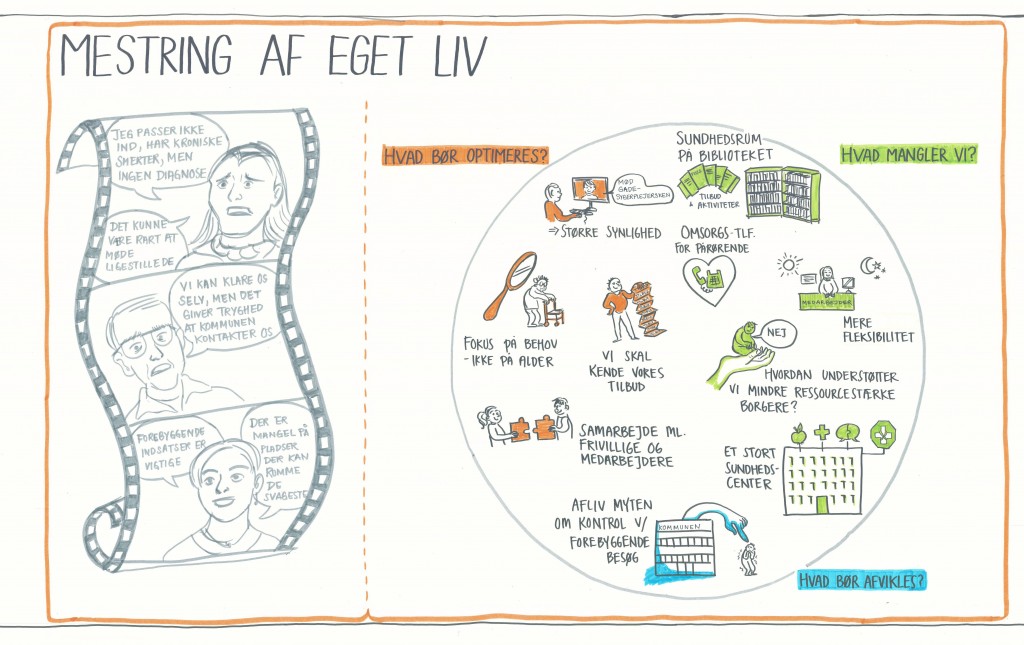 MESTRING AF EGET LIV
JEG PASSER IKKE
IND, HAR KRONISKE
SMERTER, MEN
INGEN DIAGNOSE
DET KUNNE
VÆRE RART AT
MØDE
LIGESTILLEDE
VI KAN KLARE OS
SELV, MEN DET
GIVER TRYGHED
AT KOMMUNEN
KONTAKTER OS
FOREBYGGENDE
INDSATSER ER
VIGTIGE
DER ER
MANGEL PÅ
PLADSER
DER KAN
RUMME
DE
SVAGESTE
HVAD BØR OPTIMERES?
MØD
GADE-
SYGEPLEJERSKEN
⇒ STØRRE SYNLIGHED
FOKUS PÅ BEHOV
- IKKE PÅ ALDER
VI SKAL
KENDE VORES
TILBUD
SAMARBEJDE ML.
FRIVILLIGE OG
MEDARBEJDERE
HVAD MANGLER VI?
SUNDHEDSRUM
PÅ BIBLIOTEKET
TILBUD
& AKTIVITETER
OMSORGS-TLF.
FOR PÅRØRENDE
MEDARBEJDER
MERE
FLEKSIBILITET
NEJ
HVORDAN UNDERSTØTTER
VI MINDRE RESSOURCESTÆRKE
BORGERE?
ET STORT
SUNDHEDS-
CENTER
AFLIV MYTEN
OM KONTROL V/
FOREBYGGENDE
BESØG
KOMMUNEN
HVAD BØR AFVIKLES?